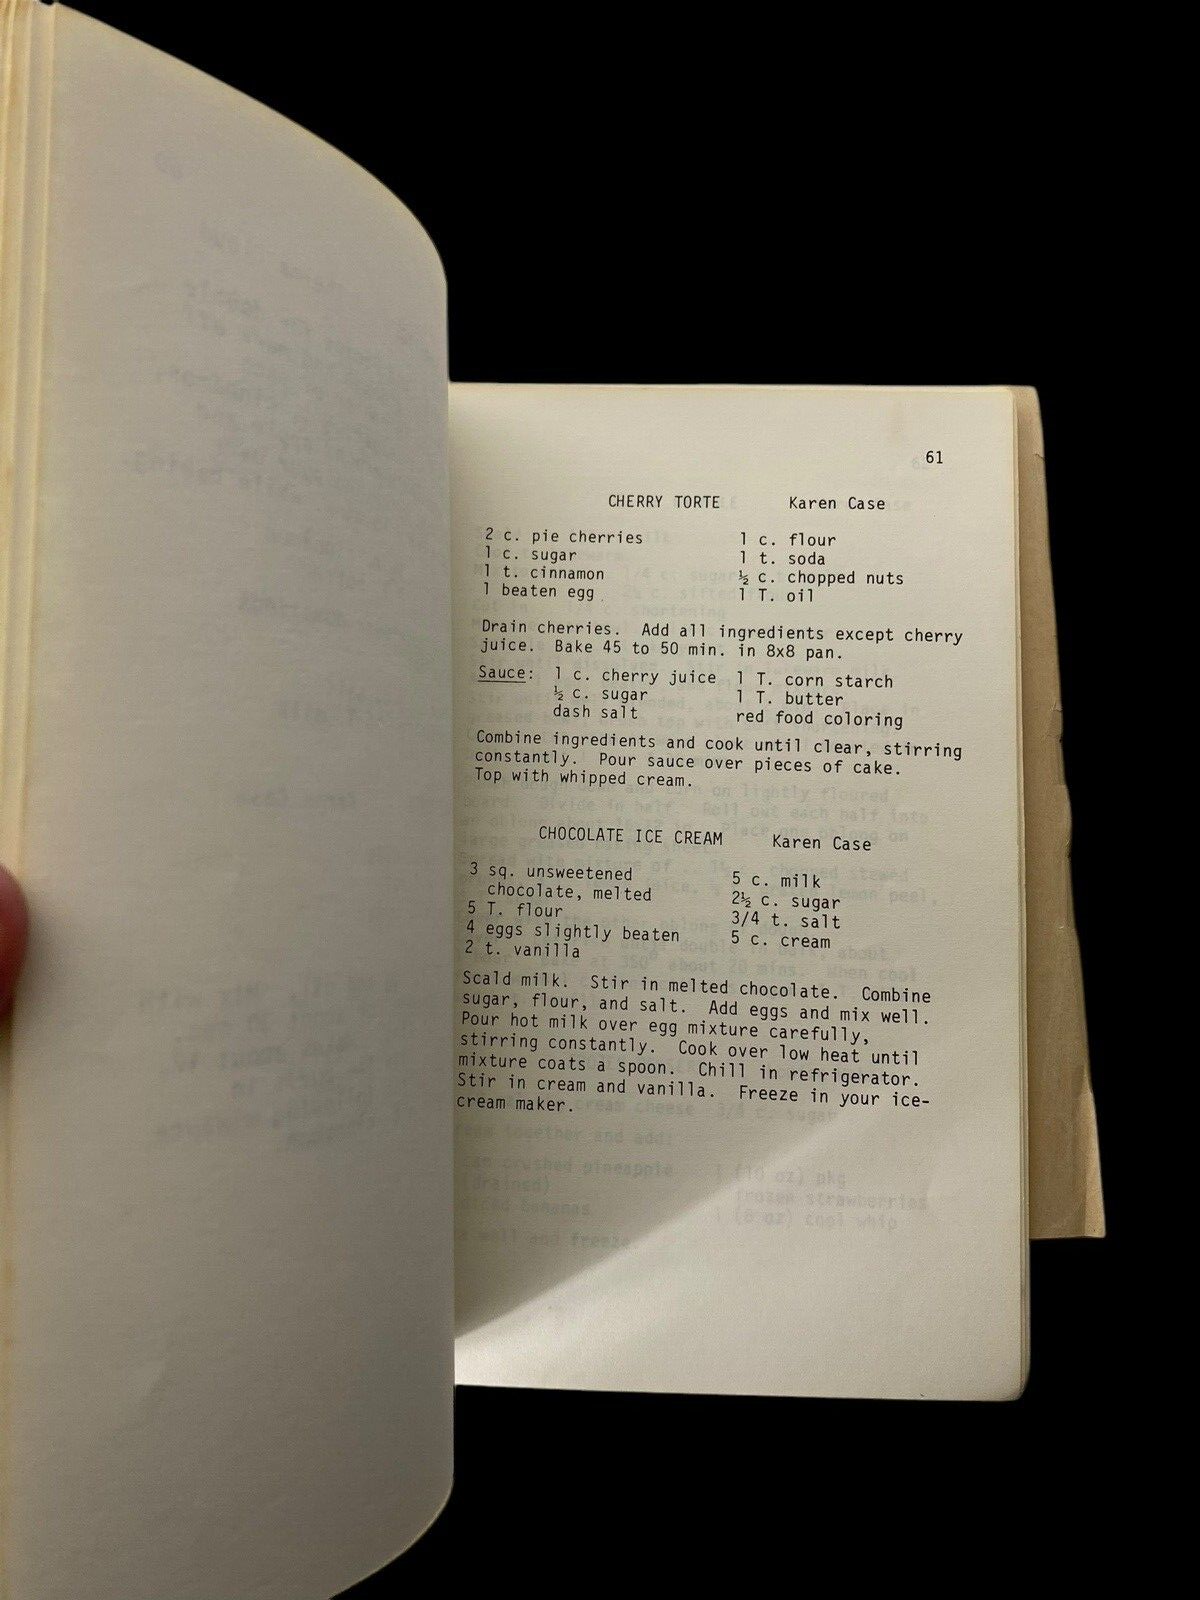 61
CHERRY TORTE Karen Case
2 c. pie cherries 1 c. flour
1 c. sugar 1 t. soda
1 t. cinnamon ½ c. chopped nuts
1 beaten egg 1 T. oil
Drain cherries. Add all ingredients except cherry
juice. Bake 45 to 50 min. in 8x8 pan.
Sauce: 1 c. cherry juice 1 T. corn starch
½ c. sugar 1 T. butter
dash salt red food coloring
Combine ingredients and cook until clear, stirring
constantly. Pour sauce over pieces of cake.
Top with whipped cream.
CHOCOLATE ICE CREAM Karen Case
3 sq. unsweetened 5 c. milk
chocolate, melted 2½ c. sugar
5 T. flour 3/4 t. salt
4 eggs slightly beaten 5 c. cream
2 t. vanilla
Scald milk. Stir in melted chocolate. Combine
sugar, flour, and salt. Add eggs and mix well.
Pour hot milk over egg mixture carefully,
stirring constantly. Cook over low heat until
mixture coats a spoon. Chill in refrigerator.
Stir in cream and vanilla. Freeze in your ice-
cream maker.